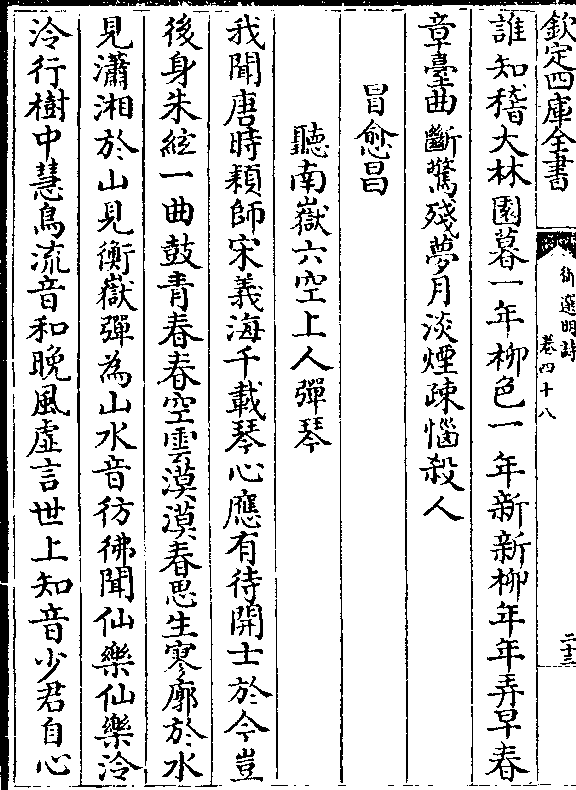 欽定四庫全書
御選明詩
卷四十八
二十三
誰知稽大林園暮一年柳色一年新新柳年年弄早春
章臺曲斷驚殘夢月淡煙疎惱殺人
冒愈昌
聽南嶽六空上人彈琴
我聞唐時穎師宋義海千載琴心應有待開士於今豈
後身朱絃一曲鼓青春春空雲漠漠春思生寥廓於水
見瀟湘於山見衡嶽彈為山水音彷彿聞仙樂仙樂泠
泠行樹中慧鳥流音和晚風虛言世上知音少君自心